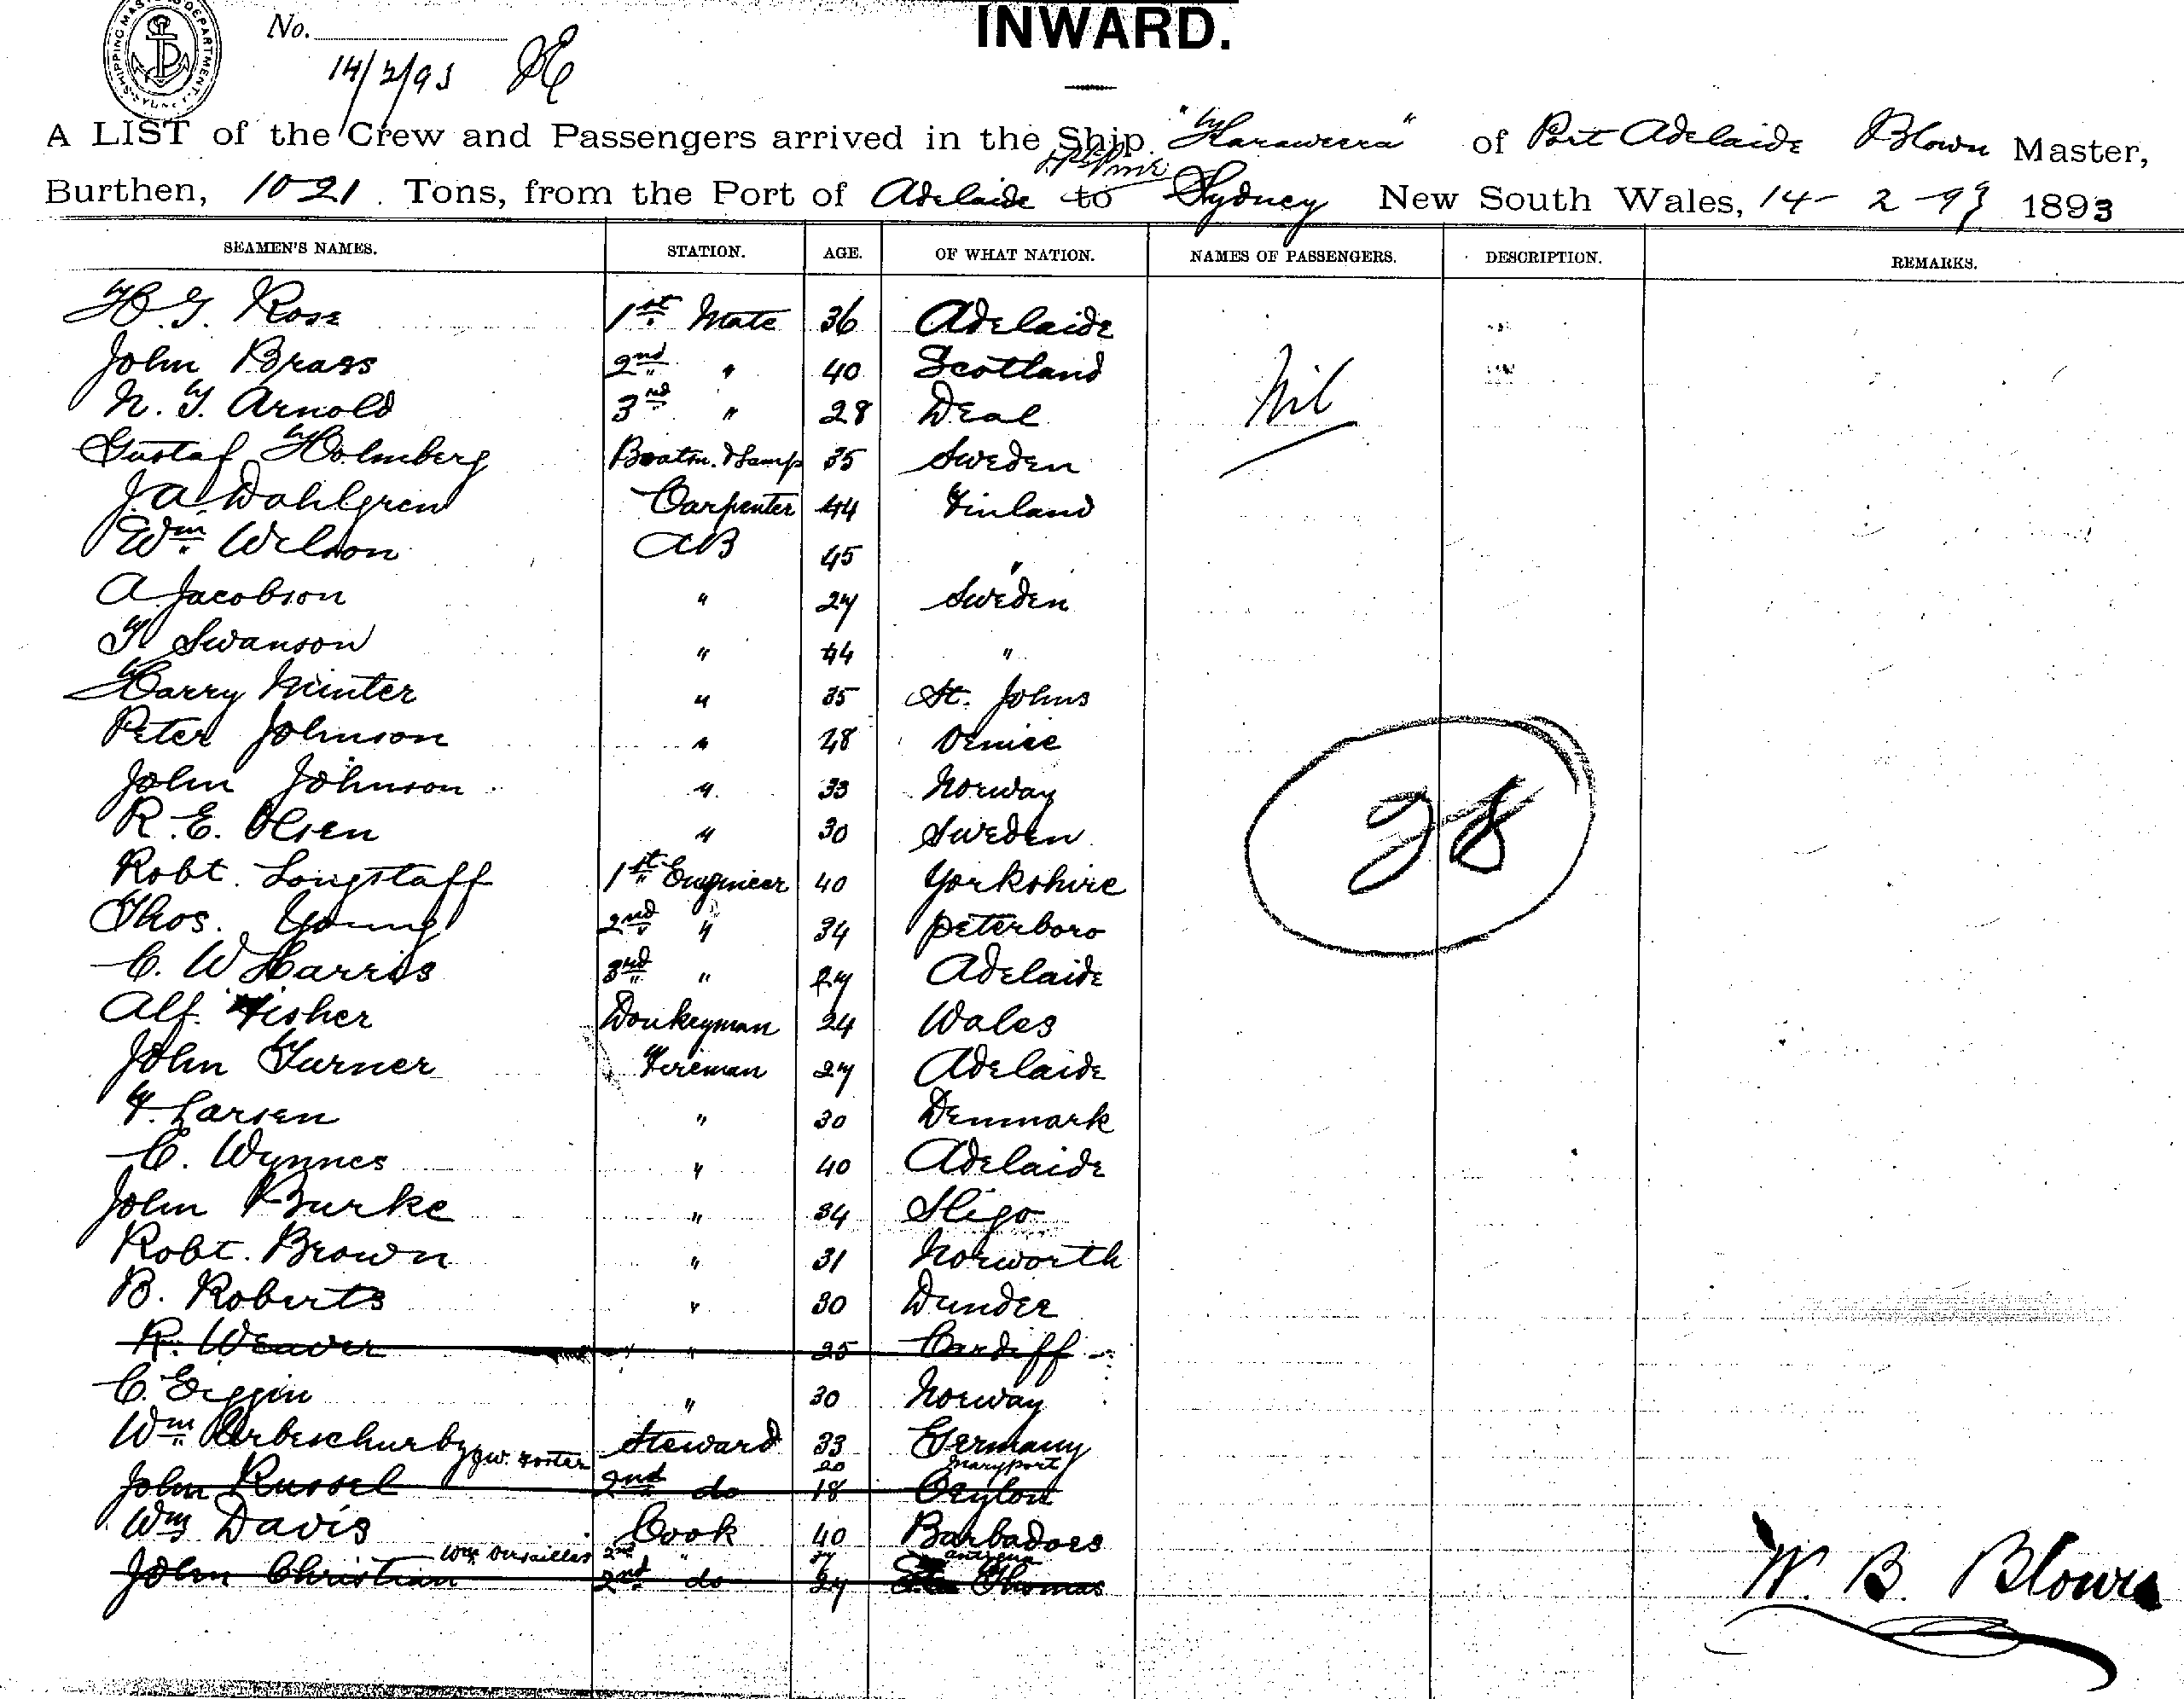 SHIPPING MASTER'S DEPARTMENT
No.
14/2/93
INWARD.
A LIST of the Crew and Passengers arrived in the Ship "Warawerra" of Port Adelaide Blown Master,
Burthen, 1021 Tons, from the Port of Adelaide & Pt Pirie to Sydney New South Wales, 14 - 2 - 93 1893
SEAMEN'S NAMES. STATION. AGE. OF WHAT NATION. NAMES OF PASSENGERS. DESCRIPTION. REMARKS.
H. G. Rose 1st Mate 36 Adelaide
John Brass 2nd " 40 Scotland
N. F. Arnold 3rd " 28 Deal Nil
Gustaf Holmberg Boatsn. & Lamp 35 Sweden
J. A. Dahlgren Carpenter 44 Finland
Wm Wilson AB 45 "
A Jacobson " 27 Sweden
F Swanson " 44 "
Harry Hunter " 35 St. Johns
Peter Johnson " 28 Venice
John Johnson " 33 Norway
R. E. Olsen " 30 Sweden
28
Robt. Longstaff 1st Engineer 40 Yorkshire
Thos. Young 2nd " 34 Peterboro
C. W Harris 3rd " 27 Adelaide
Alf. Fisher Donkeyman 24 Wales
John Turner Fireman 27 Adelaide
F. Larsen " 30 Denmark
C. Wynnes " 40 Adelaide
John Burke " 34 Sligo
Robt. Brown " 31 Norworth
B. Roberts " 30 Dundee
R. Weaver " 25 Cardiff
C. Eggin " 30 Norway
Wm Steward 33 Germany
W. Porter 20 Maryport
John Russel 2nd do 18 Ceylon
Wm Davis Cook 40 Barbadoes
Wm Versailles 2nd " 37 Antigua
John Christian 2nd do 27 St Thomas
W. B. Blown